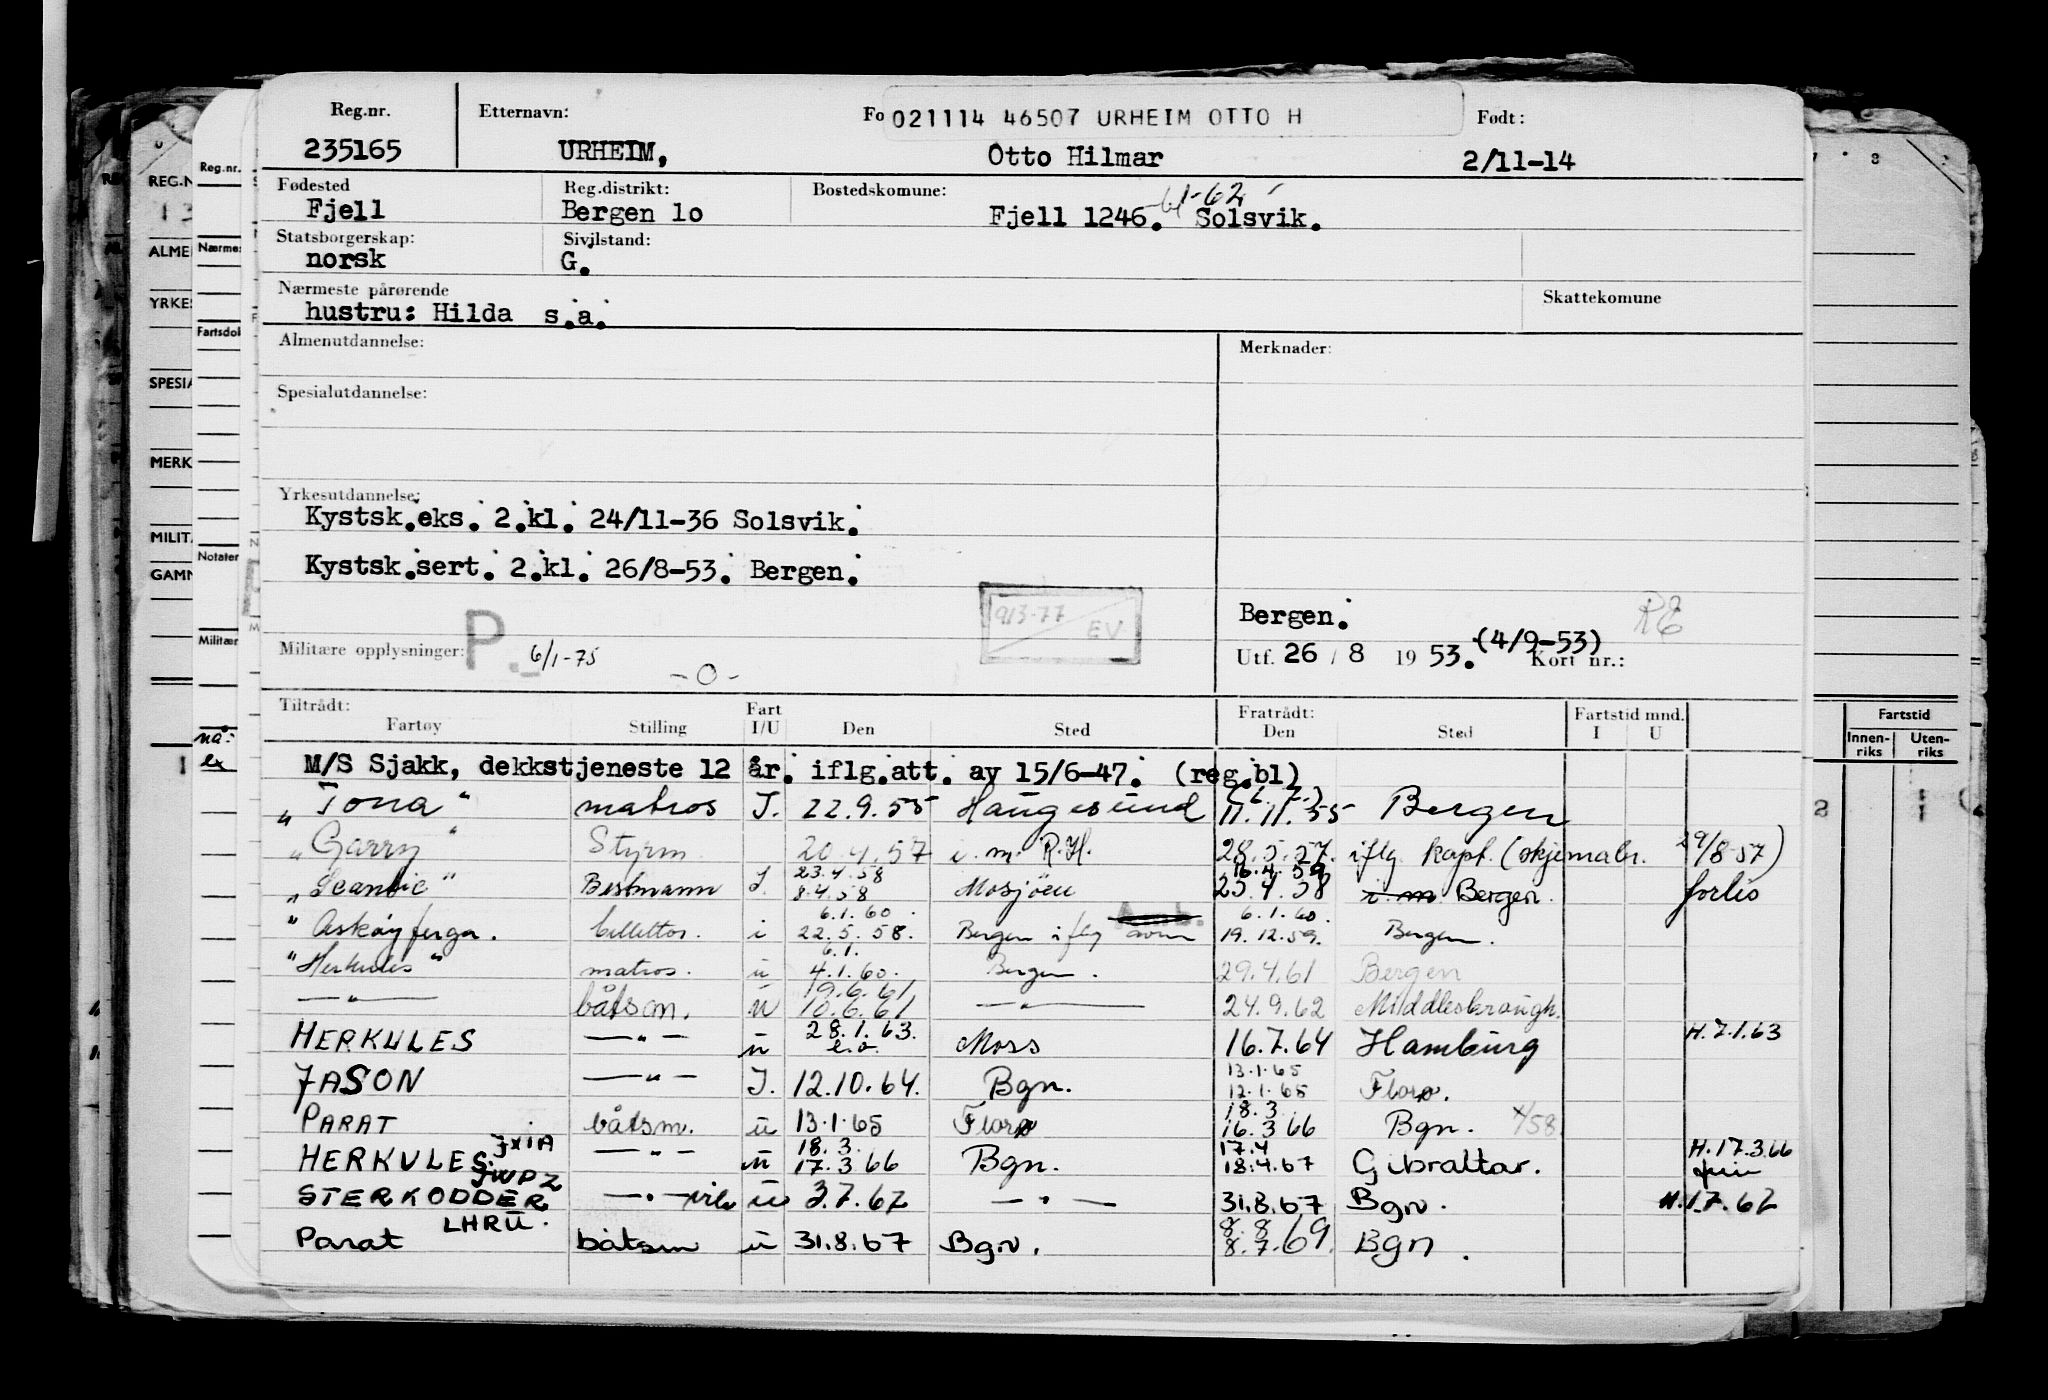 Reg.nr. Etternavn: Fo 021114 46507 URHEIM OTTO H Født:
235165 URHEIM, Otto Hilmar 2/11-14
Fødested Reg.distrikt: Bostedskomune: 61-62
Fjell Bergen 1o Fjell 1246. Solsvik.
Statsborgerskap: Sivilstand:
norsk G.
Nærmeste pårørende Skattekomune
hustru: Hilda s.a.
Almenutdannelse: Merknader:
Spesialutdannelse:
Yrkesutdannelse:
Kystsk.eks. 2.kl. 24/11-36 Solsvik.
Kystsk.sert. 2.kl. 26/8-53. Bergen.
913-77 EV
Bergen. RE
Militære opplysninger: P. 6/1-75 -0-
Utf. 26 / 8 1953. (4/9-53) Kort nr.:
Tiltrådt: Fartøy Stilling Fart I/U Den Sted Fratrådt: Den Sted Fartstid mnd. I U
M/S Sjakk, dekkstjeneste 12 år. iflg.att. av 15/6-47. (reg.bl)
"Tona" matros I. 22.9.55 Haugesund 11.11.55 Bergen
"Garry" Styrm 20.4.57 i.m. R.H. 28.5.57. iflg kapt. (skjemabr. 29/8-57)
23.4.58 16.4.59
"Scantic" Bestmann I. 8.4.58 Mosjøen 23.4.58 i m Bergen. forlis
6.1.60. 6.1.60.
"Askøyfergr. billettør. i 22.5.58. Bergen iflg 19.12.59. Bergen.
6.1.
"Herkules" matros. u 4.1.60. Bergen. 29.4.61 Bergen
19.6.61
—"— båtsm. u 10.6.61 —"— 24.9.62 Middlesbrough.
28.1.63.
HERKULES —"— u e.o. Moss 16.7.64 Hamburg H.7.1.63
13.1.65
JASON —"— I. 12.10.64. Bgn. 12.1.65 Florø.
18.3
PARAT båtsm. u 13.1.65 Florø 16.3 66 Bgn. 4/58
JXIA 18.3. 17.4
HERKULES. —"— u 17.3 66 Bgn. 18.4.67 Gibraltar. H.17.3.66
JWPZ
STERKODDER —"— u 3.7.67 —"— 31.8.67 Bgn. H.1.7.67
LHRU. 8.8
Parat båtsm u 31.8.67 Bgn. 8.7.69. Bgn.
REG.N
ALME
YRKES
SPESIA
MERK
MILITÆ
GAMM
Reg.nr.
Nærmes
Fartsdok
Notater
Militær
Fartstid
Innen-riks Uten-riks